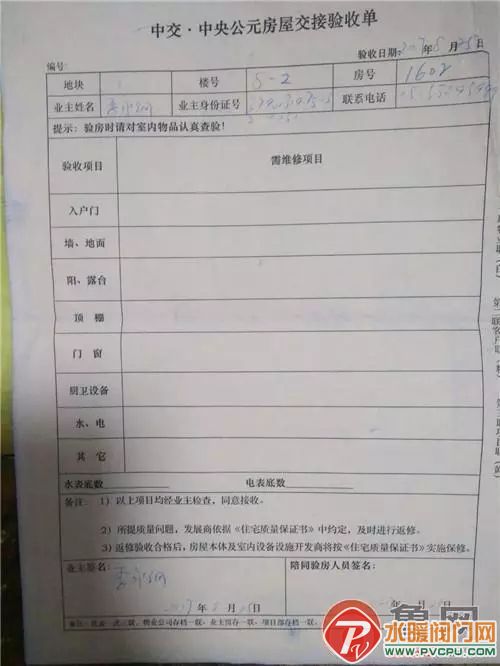 中交·中央公元房屋交接验收单
编号: 验收日期: 2017年8月25日
地块 楼号 S-2 房号 1602
业主姓名 业主身份证号 联系电话
提示：验房时请对室内物品认真查验！
验收项目 需维修项目
入户门
墙、地面
阳、露台
顶棚
门窗
厨卫设备
水、电
其它
水表底数 电表底数
备注： 1）以上项目均经业主检查，同意接收。
2）所提质量问题，发展商依据《住宅质量保证书》中约定，及时进行返修。
3）返修验收合格后，房屋本体及室内设备设施开发商将按《住宅质量保证书》实施保修。
业主签名： 陪同验房人员签名：
2017年8月25日 年 月 日
鲁网
水暖阀门网
WWW.PVCPU.COM